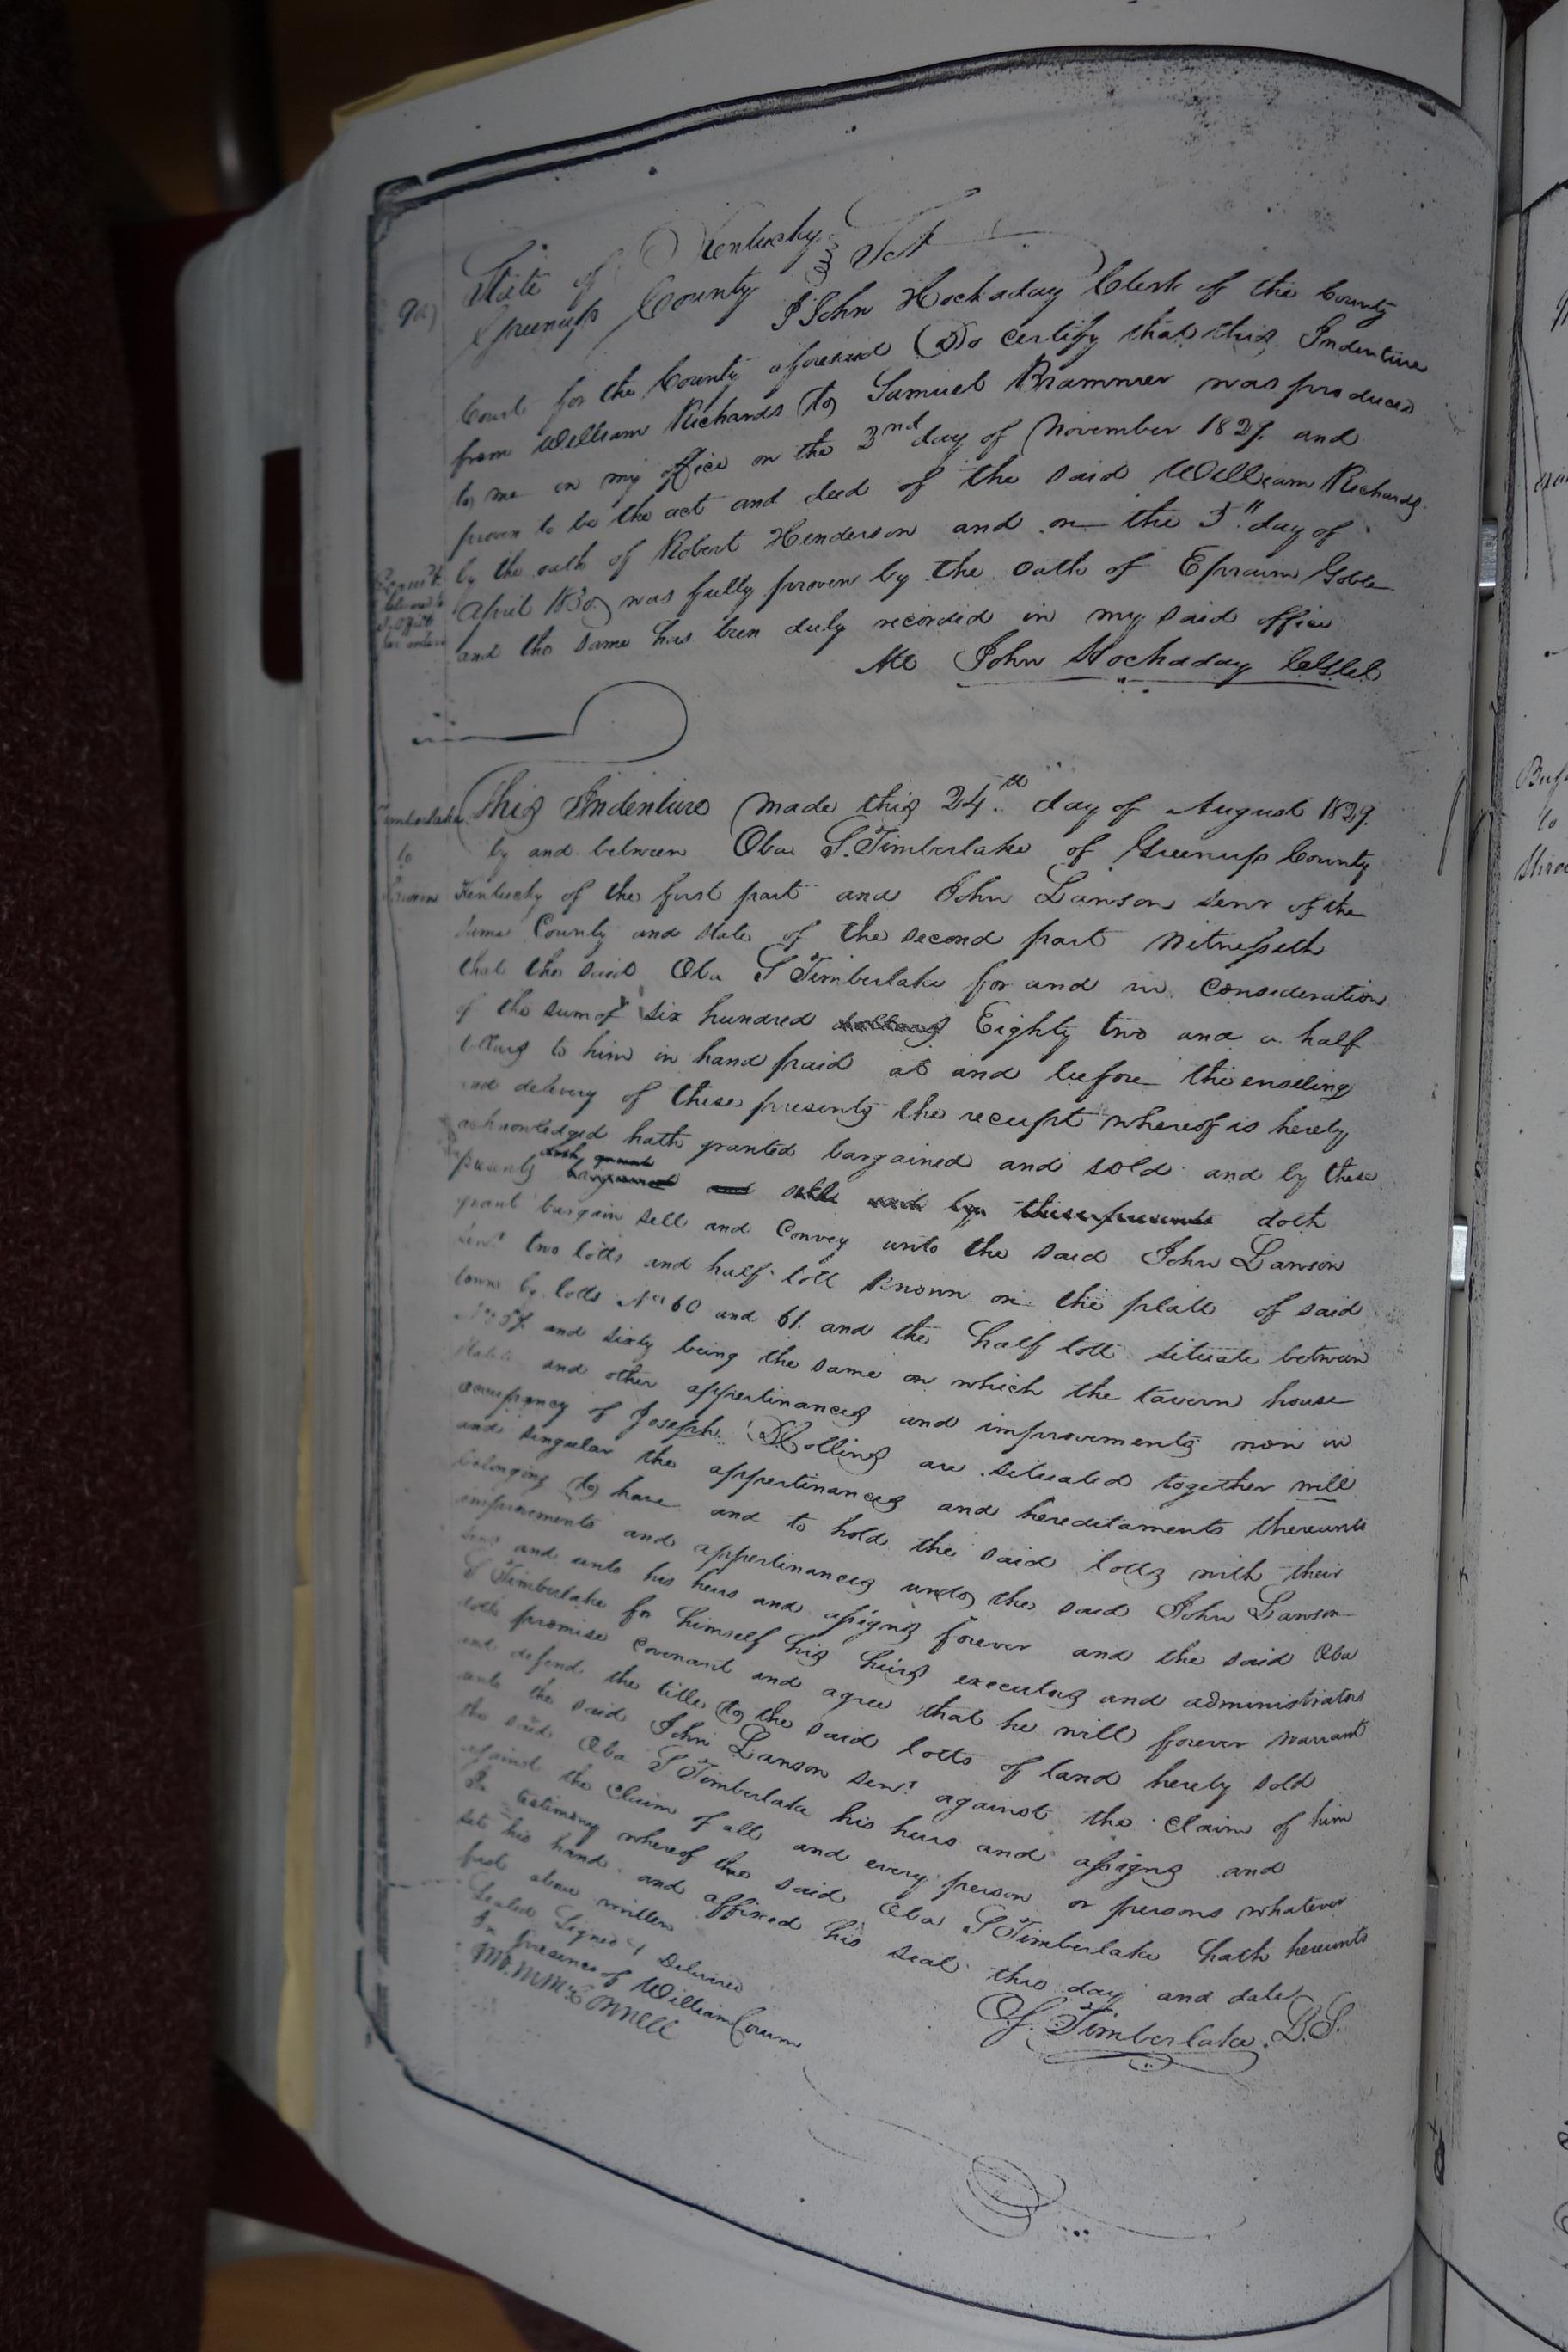 State of Kentucky } Sct
Greenup County
I John Hockaday Clerk of the County
Court for the County aforesaid Do certify that this Indenture
from William Richards to Samuel Brammer was produced
to me in my office on the 3nd day of November 1829 and
proven to be the act and deed of the said William Richards
by the oath of Robert Henderson and on the 5" day of
April 1830 was fully proven by the oath of Epraim Goble
and the same has been duly recorded in my said office
Att John Hockaday
Timberlake
to
Lawson
This Indenture made this 24.th day of August 1829.
by and between Oba S. Timberlake of Greenup County
Kentucky of the first part and John Lawson senr of the
same County and State of the second part Witnesseth
that the said Oba S Timberlake for and in consideration
of the sum of six hundred dollars Eighty two and a half
dollars to him in hand paid at and before the enseling
and delivery of these presents the receipt whereof is hereby
acknowledged hath granted bargained and sold and by these
presents bargained and sells and by these presents doth
grant bargain sell and Convey unto the said John Lawson
senr two lotts and half lott Known on the platt of said
town by lotts No 60 and 61. and the half lott situate between
No 59 and sixty being the same on which the tavern house
stable and other appertinances and improvements now in
occupancy of Joseph Hollins are situated together will
and singular the appertinances and hereditaments thereunto
belonging to have and to hold the said lotts with their
improvements and appertinances unto the said John Lawson
senr and unto his heirs and assigns forever and the said Oba
S Timberlake for himself his heirs executors and administrators
doth promise covenant and agree that he will forever warrant
and defend the title to the said lotts of land hereby sold
unto the said John Lawson senr against the claim of him
the said Oba S Timberlake his heirs and assigns and
against the claim of all and every person or persons whatever
In testimony whereof the said Oba S Timberlake hath hereunto
set his hand and affixed his seal the day and date
first above written
Sealed Signed & Delivered
In presence of William Corum
O. S. Timberlake. L.S.